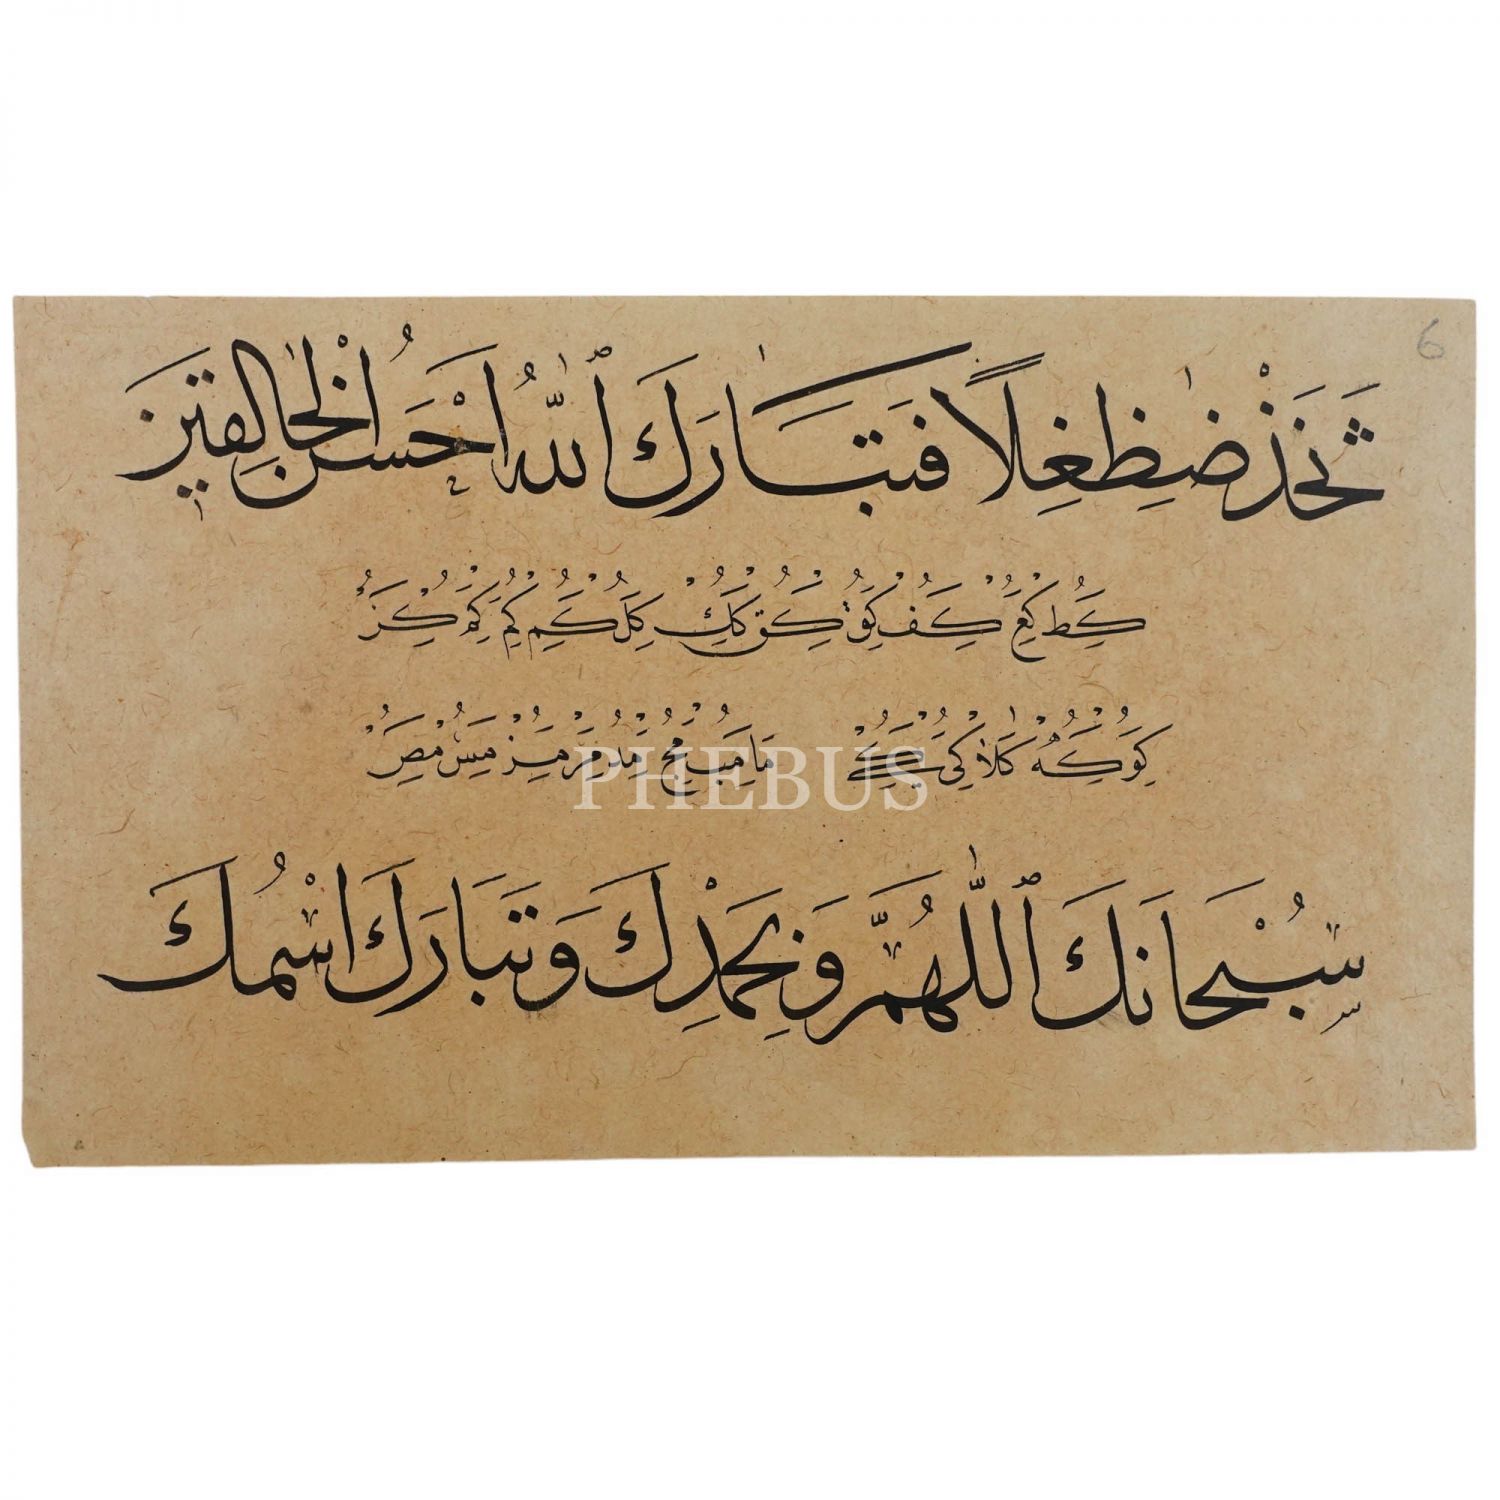 6
ثَخَذْ ضَظِغِلًا فَتَبَارَكَ ٱللّٰهُ اَحْسَنُ الْخَالِقٖينَ
كط كع كف كو كق كك كل كم كم كم كن
كو كه كلا كى كے ما مب مج مد مر مز مس مص
سُبْحَانَكَ ٱللّٰهُمَّ وَبِحَمْدِكَ وَتَبَارَكَ اسْمُكَ
PHEBUS